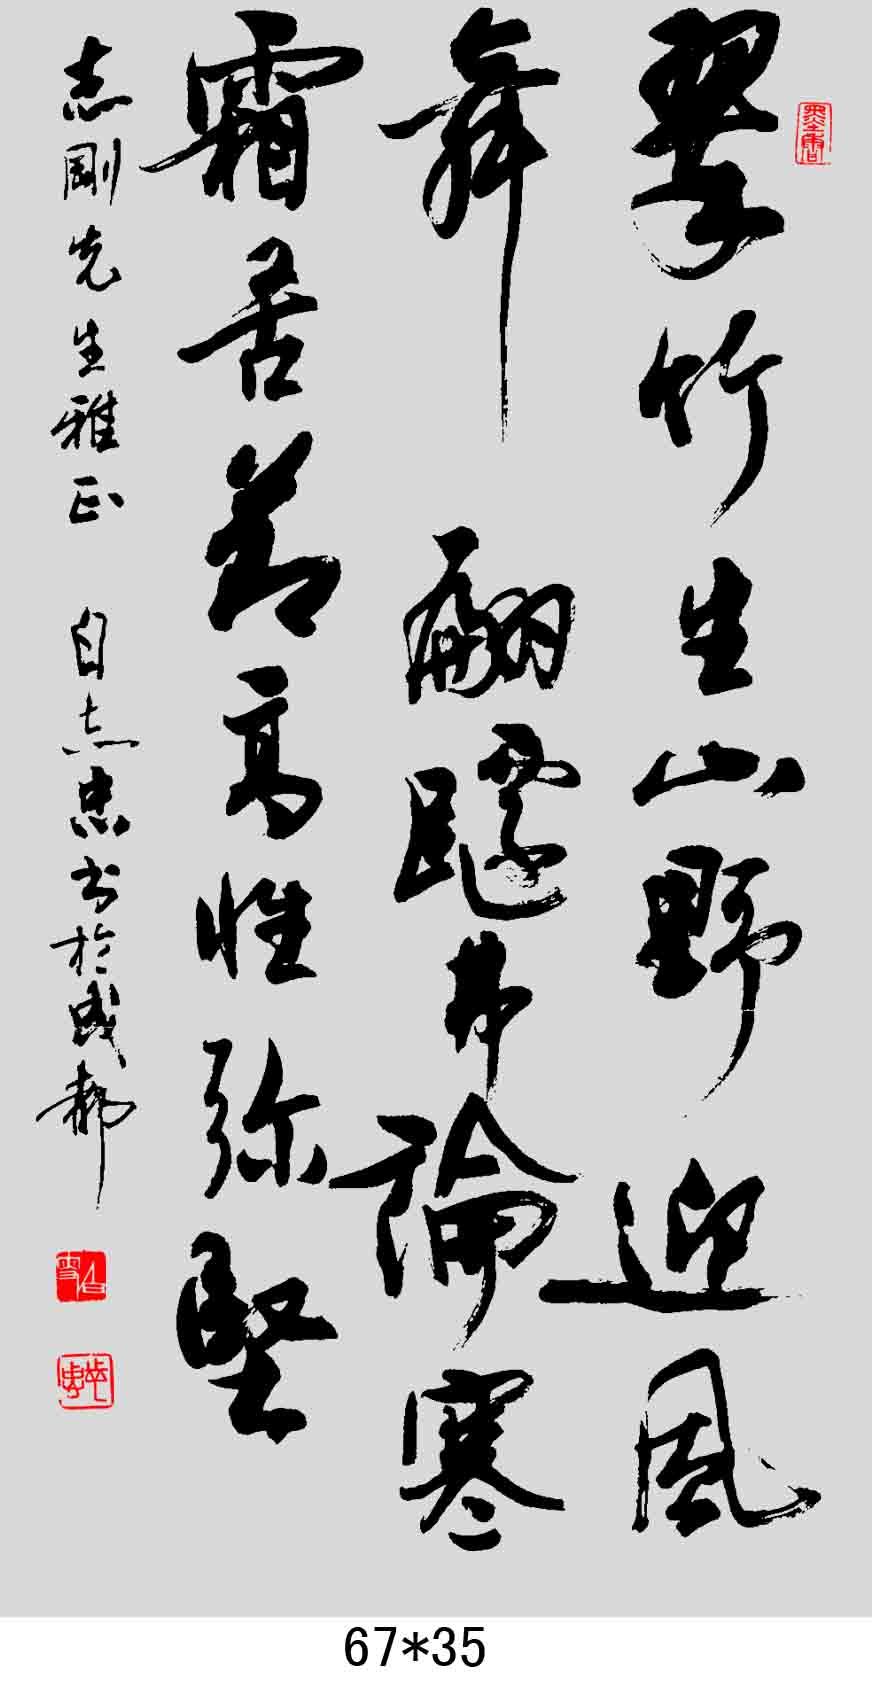 翠竹生山野迎風
舞翩躚弗論寒
霜苦節高性弥堅
志剛先生雅正 白志忠书於成都
67*35